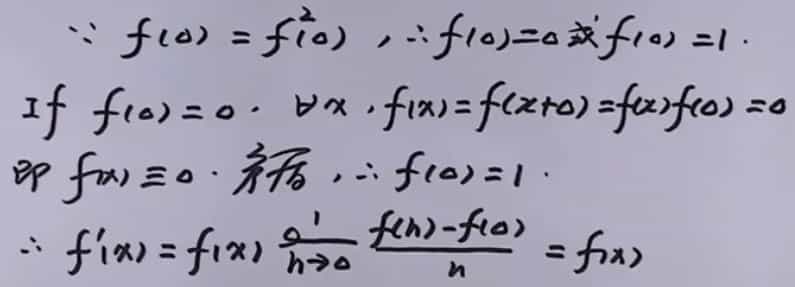 ∵ f(0) = f²(0) , ∴ f(0)=0 或 f(0) =1 .
If f(0) = 0 . ∀x , f(x) = f(x+0) = f(x)f(0) = 0
即 f(x) ≡ 0 . 矛盾 , ∴ f(0) = 1 .
∴ f'(x) = f(x) lim h→0 f(h)-f(0) / h = f(x)